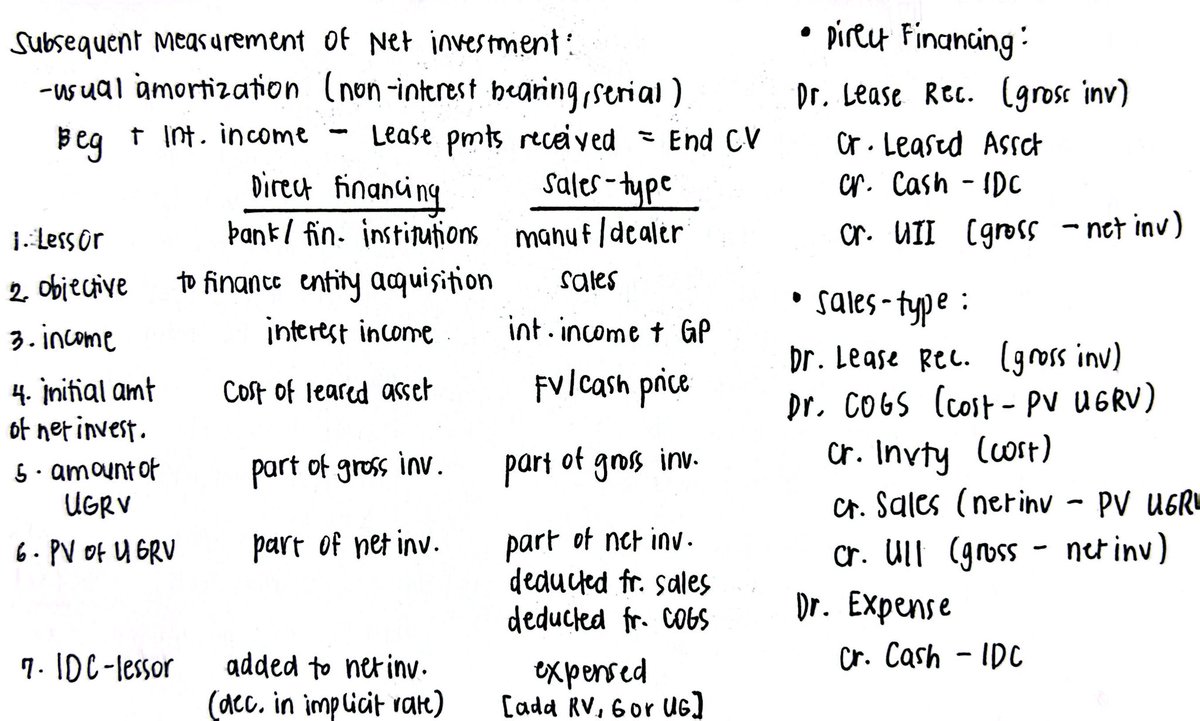 Subsequent Measurement of Net investment:
-usual amortization (non-interest bearing, serial)
Beg + Int. income - Lease pmts received = End CV
Direct Financing Sales-type
1. Lessor bank/ fin. institutions manuf/dealer
2. objective to finance entity acquisition sales
3. income interest income int. income + GP
4. initial amt Cost of leased asset FV/cash price
of net invest.
5. amount of part of gross inv. part of gross inv.
UGRV
6. PV of UGRV part of net inv. part of net inv.
deducted fr. sales
deducted fr. COGS
7. IDC-lessor added to net inv. expensed
(dec. in implicit rate) [add RV, G or UG]
• Direct Financing:
Dr. Lease Rec. (gross inv)
Cr. Leased Asset
cr. Cash - IDC
cr. UII (gross - net inv)
• Sales-type:
Dr. Lease Rec. (gross inv)
Dr. COGS (cost - PV UGRV)
cr. Invty (cost)
cr. Sales (net inv - PV UGRV
cr. UII (gross - net inv)
Dr. Expense
cr. Cash - IDC